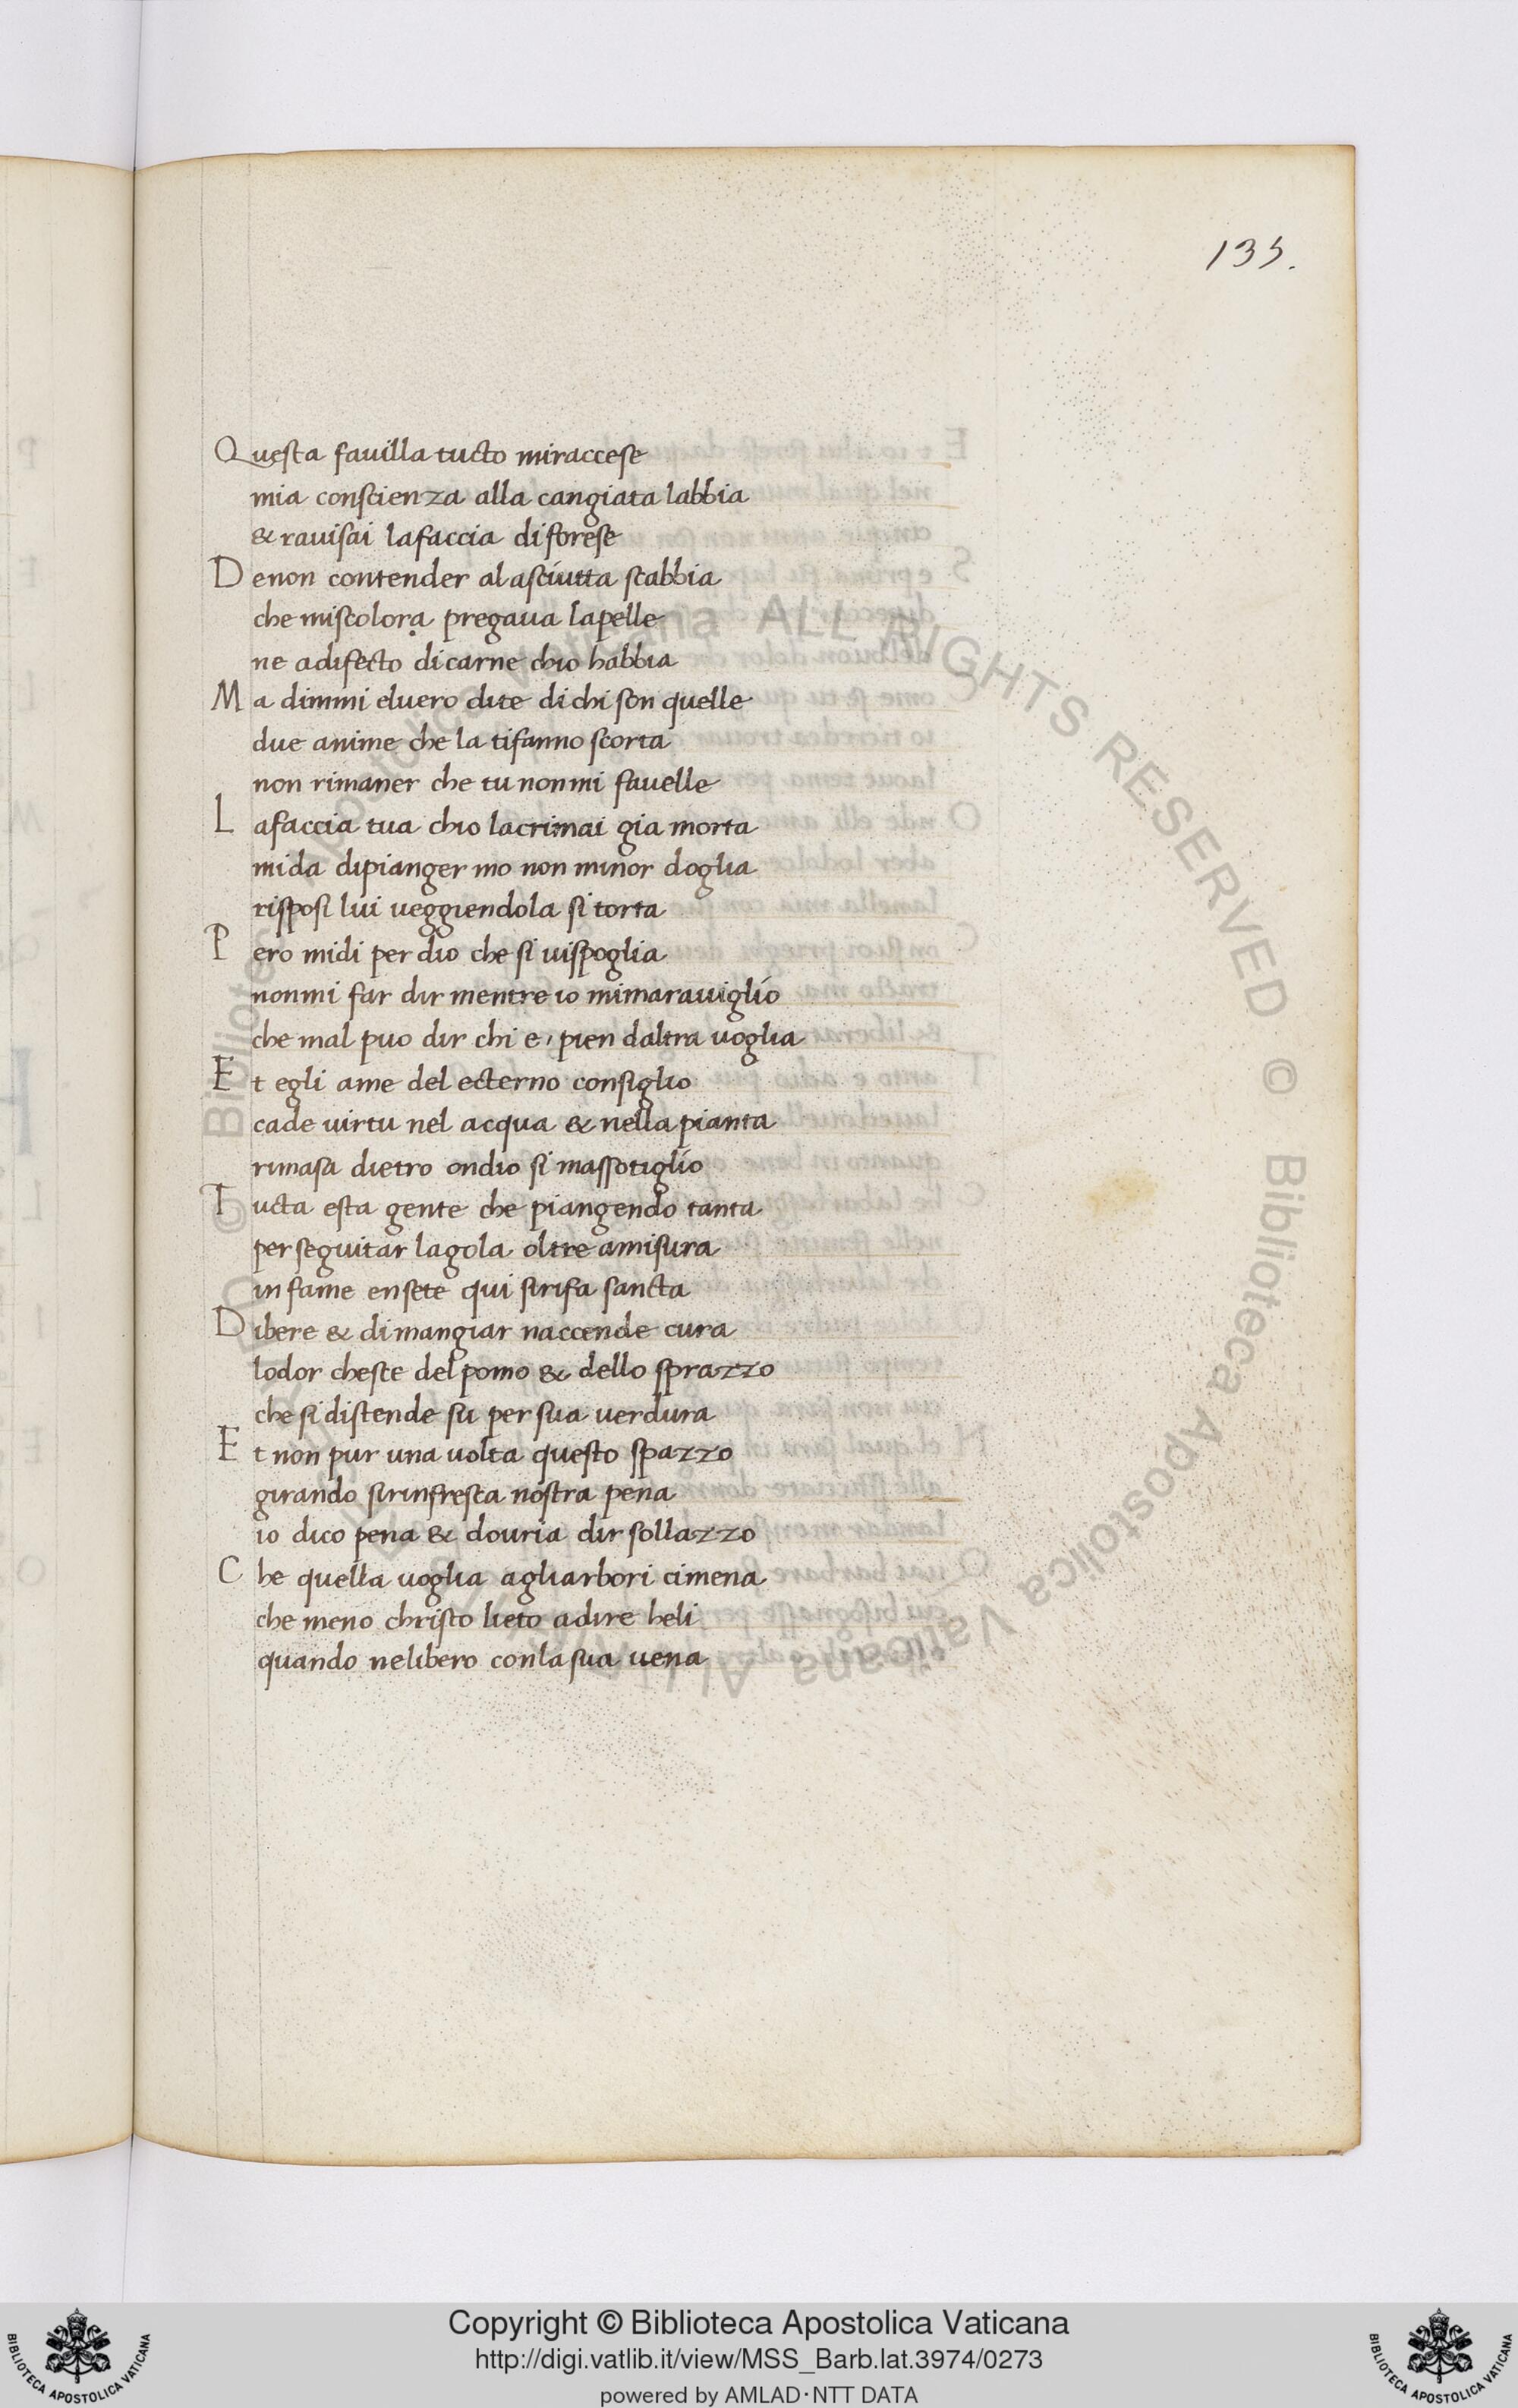 135.
Questa fauilla tucto miraccese
mia conscienza alla cangiata labbia
& rauisai lafaccia diforese
Denon contender al asciutta scabbia
che miscolora pregaua lapelle
ne adifecto dicarne chio habbia
Ma dimmi eluero dite dichi son quelle
due anime che la tifanno scorta
non rimaner che tu nonmi fauelle
Lafaccia tua chio lacrimai gia morta
mida dipianger mo non minor doglia
risposi lui ueggiendola si torta
Pero midi per dio che si uispoglia
nonmi far dir mentre io mimarauiglio
che mal puo dir chi e, pien daltra uoglia
Et egli ame del ecterno consiglio
cade uirtu nel acqua & nella pianta
rimasa dietro ondio si massotiglio
Tucta esta gente che piangendo tanta
per seguitar lagola oltre amisura
in fame ensete qui sirifa sancta
Dibere & dimangiar naccende cura
lodor cheste del pomo & dello sprazzo
che si distende su per sua uerdura
Et non pur una uolta questo spazzo
girando sirinfresca nostra pena
io dico pena & douria dir sollazzo
Che quella uoglia agliarbori cimena
che meno christo lieto adire heli
quando nelibero conla sua uena
Copyright © Biblioteca Apostolica Vaticana
http://digi.vatlib.it/view/MSS_Barb.lat.3974/0273
powered by AMLAD·NTT DATA